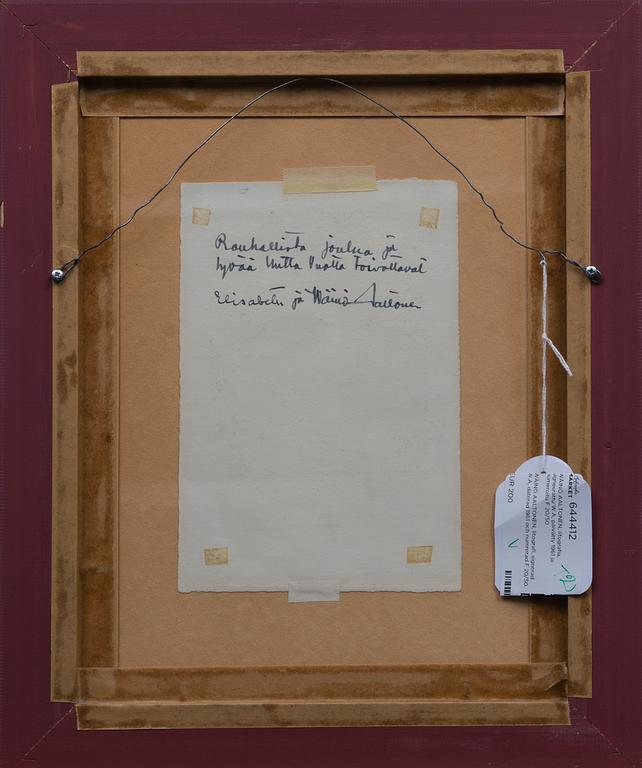 Rauhallista joulua ja
hyvää Uutta Vuotta toivottavat
Elisabeth ja Wäinö Aaltonen
MARKET 644412
WÄINÖ AALTONEN, litografia,
signeerattu W.A, päivätty 1961 ja
numeroitu F 20/50.
WÄINÖ AALTONEN, litografi, signerad
W.A, daterad 1961 och numrerad F 20/50.
EUR 200
V